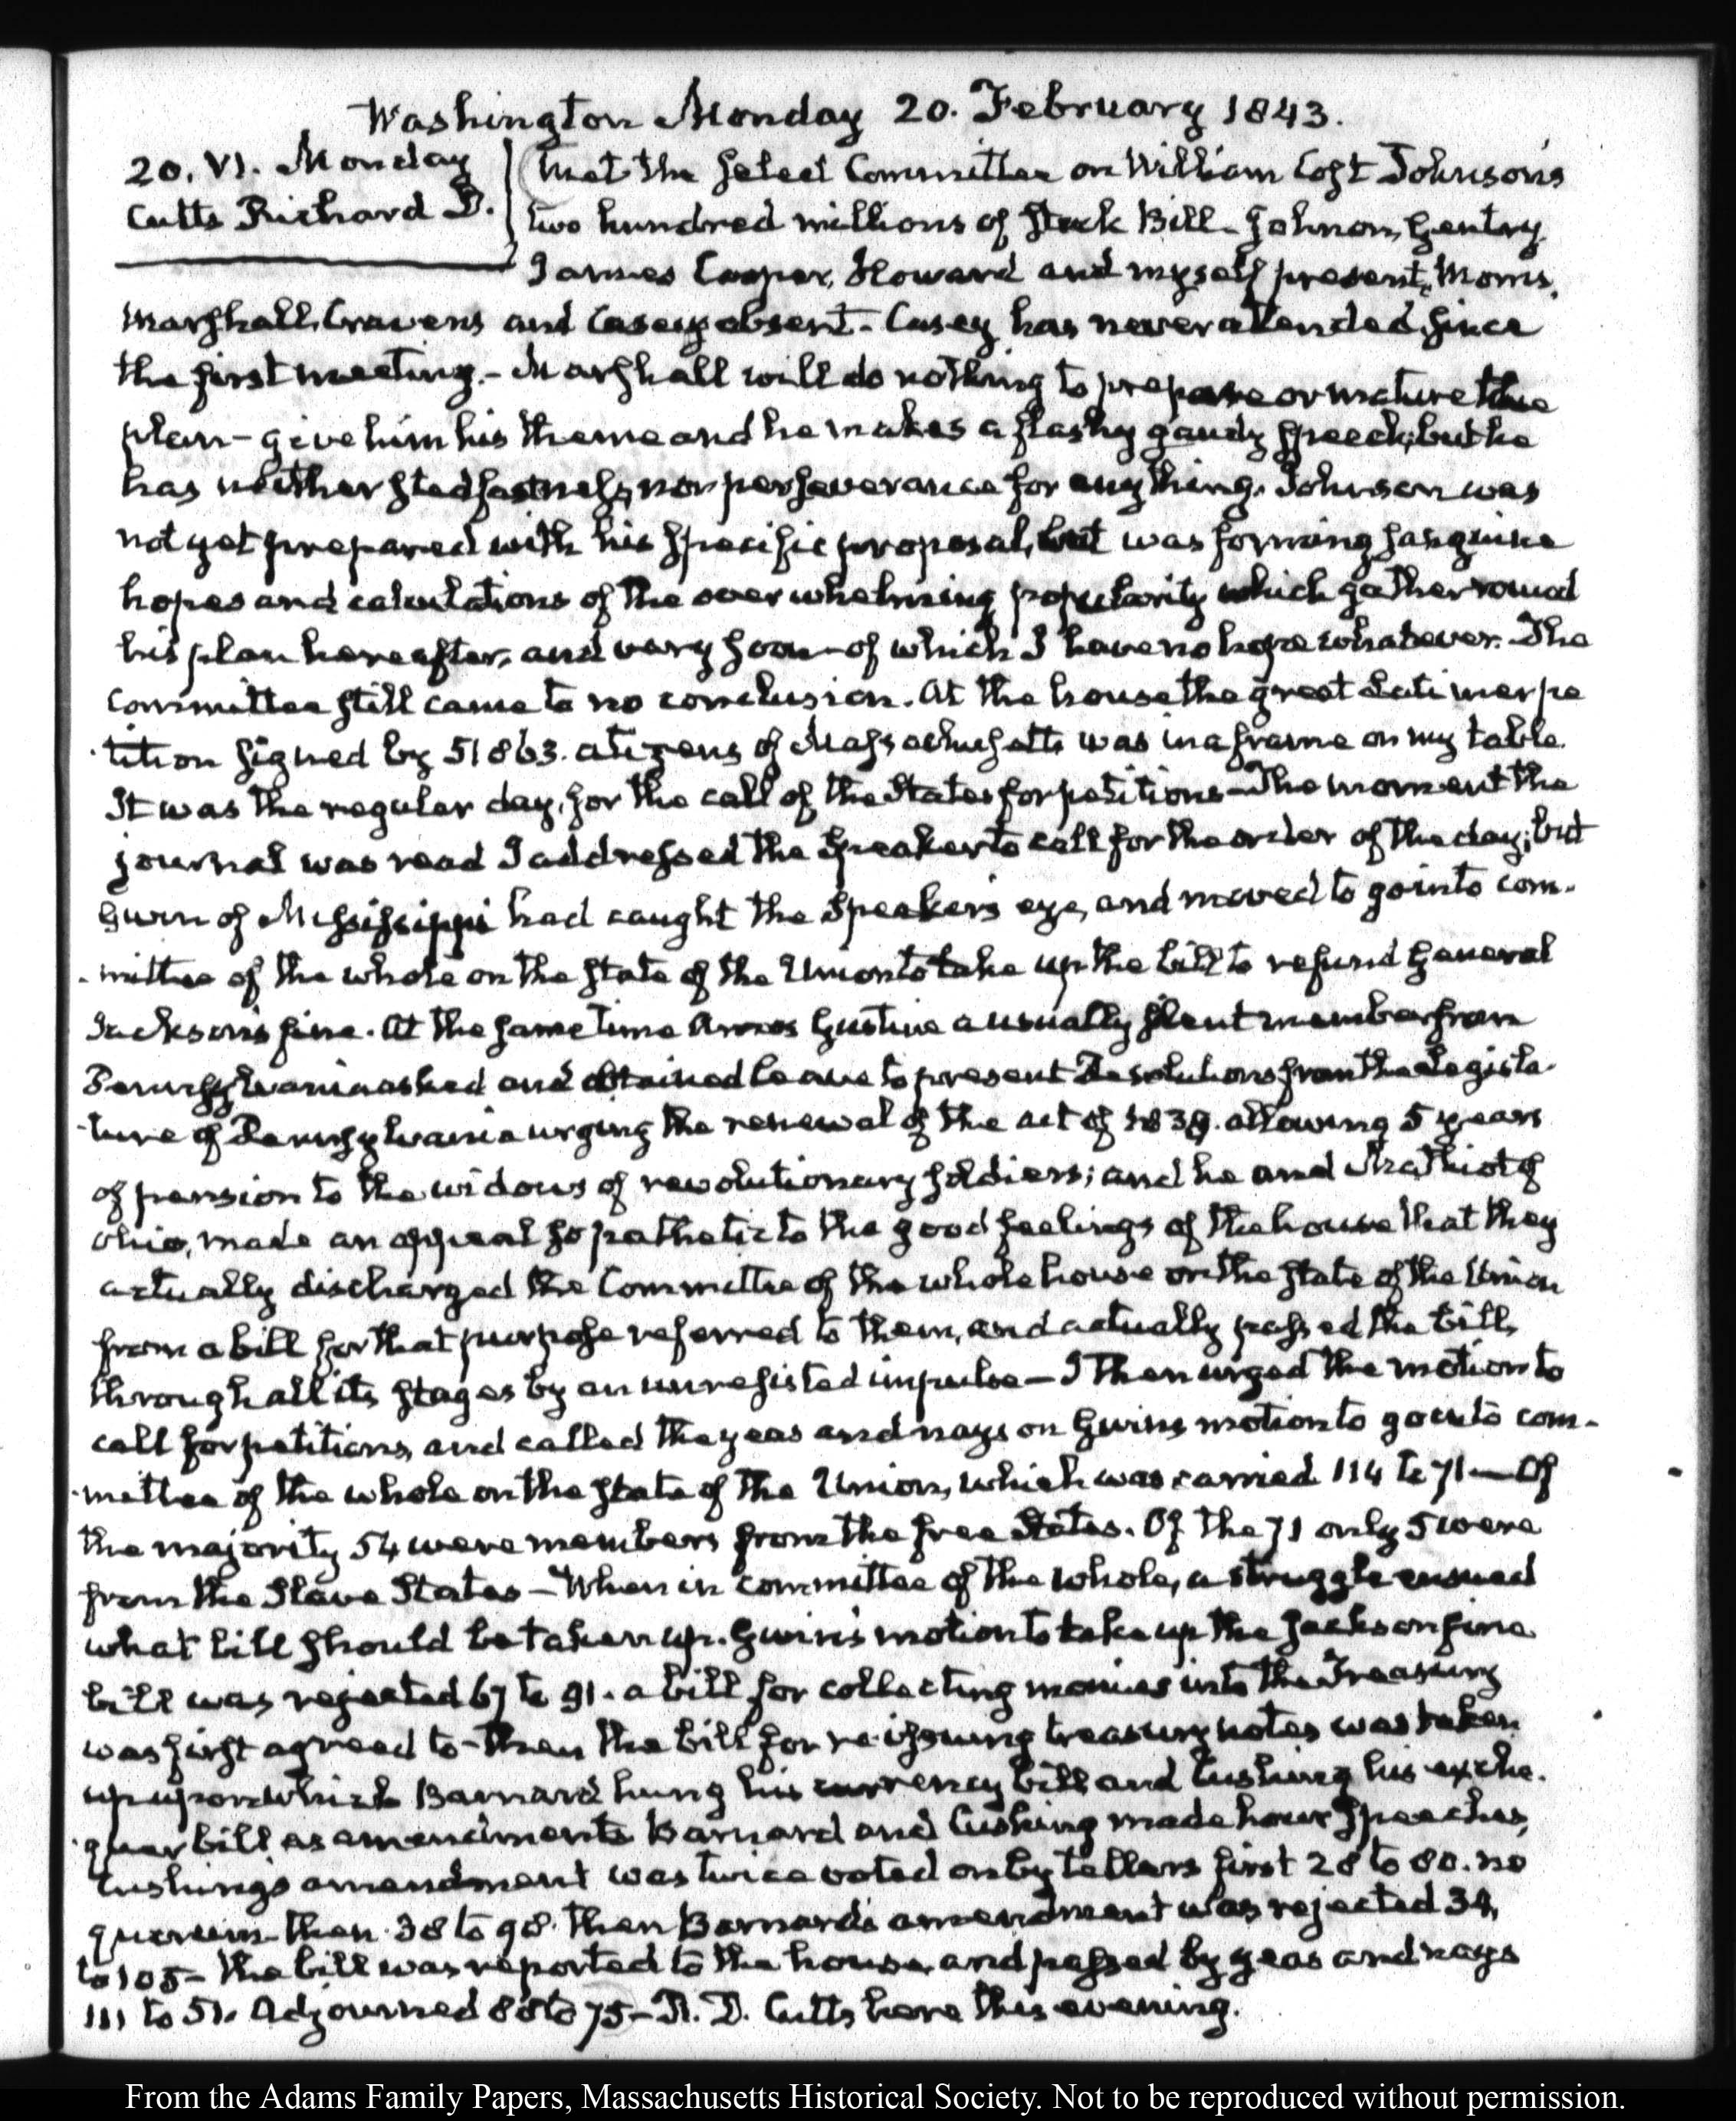 Washington Monday 20. February 1843.
20. VI. Monday
Cutts Richard D.
Met the Select Committee on William Cost Johnson's
two hundred millions of Stock Bill - Johnson, Gentry
James Cooper, Howard and myself present, Morris,
Marshall, Cravens and Casey absent - Casey has never attended since
the first meeting. - Marshall will do nothing to prepare or mature the
plan - give him his theme and he makes a flashy gaudy speech; but he
has neither stedfastness, nor perseverance for any thing. Johnson was
not yet prepared with his specific proposal, but was forming sanguine
hopes and calculations of the overwhelming popularity which gather round
his plan hereafter, and very soon - of which I have no hope whatever. The
Committee still came to no conclusion. At the house the great Latimer pe
tition signed by 51863. citizens of Massachusetts was in a frame on my table.
It was the regular day, for the call of the States for petitions - The moment the
journal was read I addressed the Speaker to call for the order of the day; but
Gwin of Mississippi had caught the Speaker's eye, and moved to go into com-
mittee of the whole on the state of the Union to take up the bill to refund General
Jackson's fine. At the same time Amos Gustine a usually silent member from
Pennsylvania asked and obtained leave to present Resolutions from the Legisla-
ture of Pennsylvania urging the renewal of the act of 1838. allowing 5 years
of pension to the widows of revolutionary soldiers; and he and Mathiot of
Ohio, made an appeal so pathetic to the good feelings of the house that they
actually discharged the Committee of the whole house on the state of the Union
from a bill for that purpose referred to them, and actually passed the bill,
through all its stages by an unresisted impulse - I then urged the motion to
call for petitions, and called the yeas and nays on Gwin's motion to go into com-
mittee of the whole on the state of the Union, which was carried 114 to 71 - Of
the majority 54 were members from the free States. Of the 71 only 5 were
from the Slave States - When in committee of the whole, a struggle ensued
what bill should be taken up. Gwin's motion to take up the Jackson fine
bill was rejected 67 to 91. a bill for collecting monies into the Treasury
was first agreed to - then the bill for re-issuing treasury notes was taken
up upon which Barnard hung his currency bill and Cushing his exche-
quer bill, as amendments Barnard and Cushing made hour speeches,
Cushing's amendment was twice voted on by tellers first 28 to 80. no
quorum - then 38 to 98. then Barnard's amendment was rejected 34,
to 105 - the bill was reported to the house, and passed by yeas and nays
111 to 51. Adjourned 88 to 75 - R. D. Cutts here this evening.
From the Adams Family Papers, Massachusetts Historical Society. Not to be reproduced without permission.